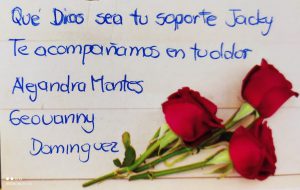 Qué Dios sea tu soporte Jacky
Te acompañamos en tu dolor
Alejandra Montes
Geovanny
Dominguez